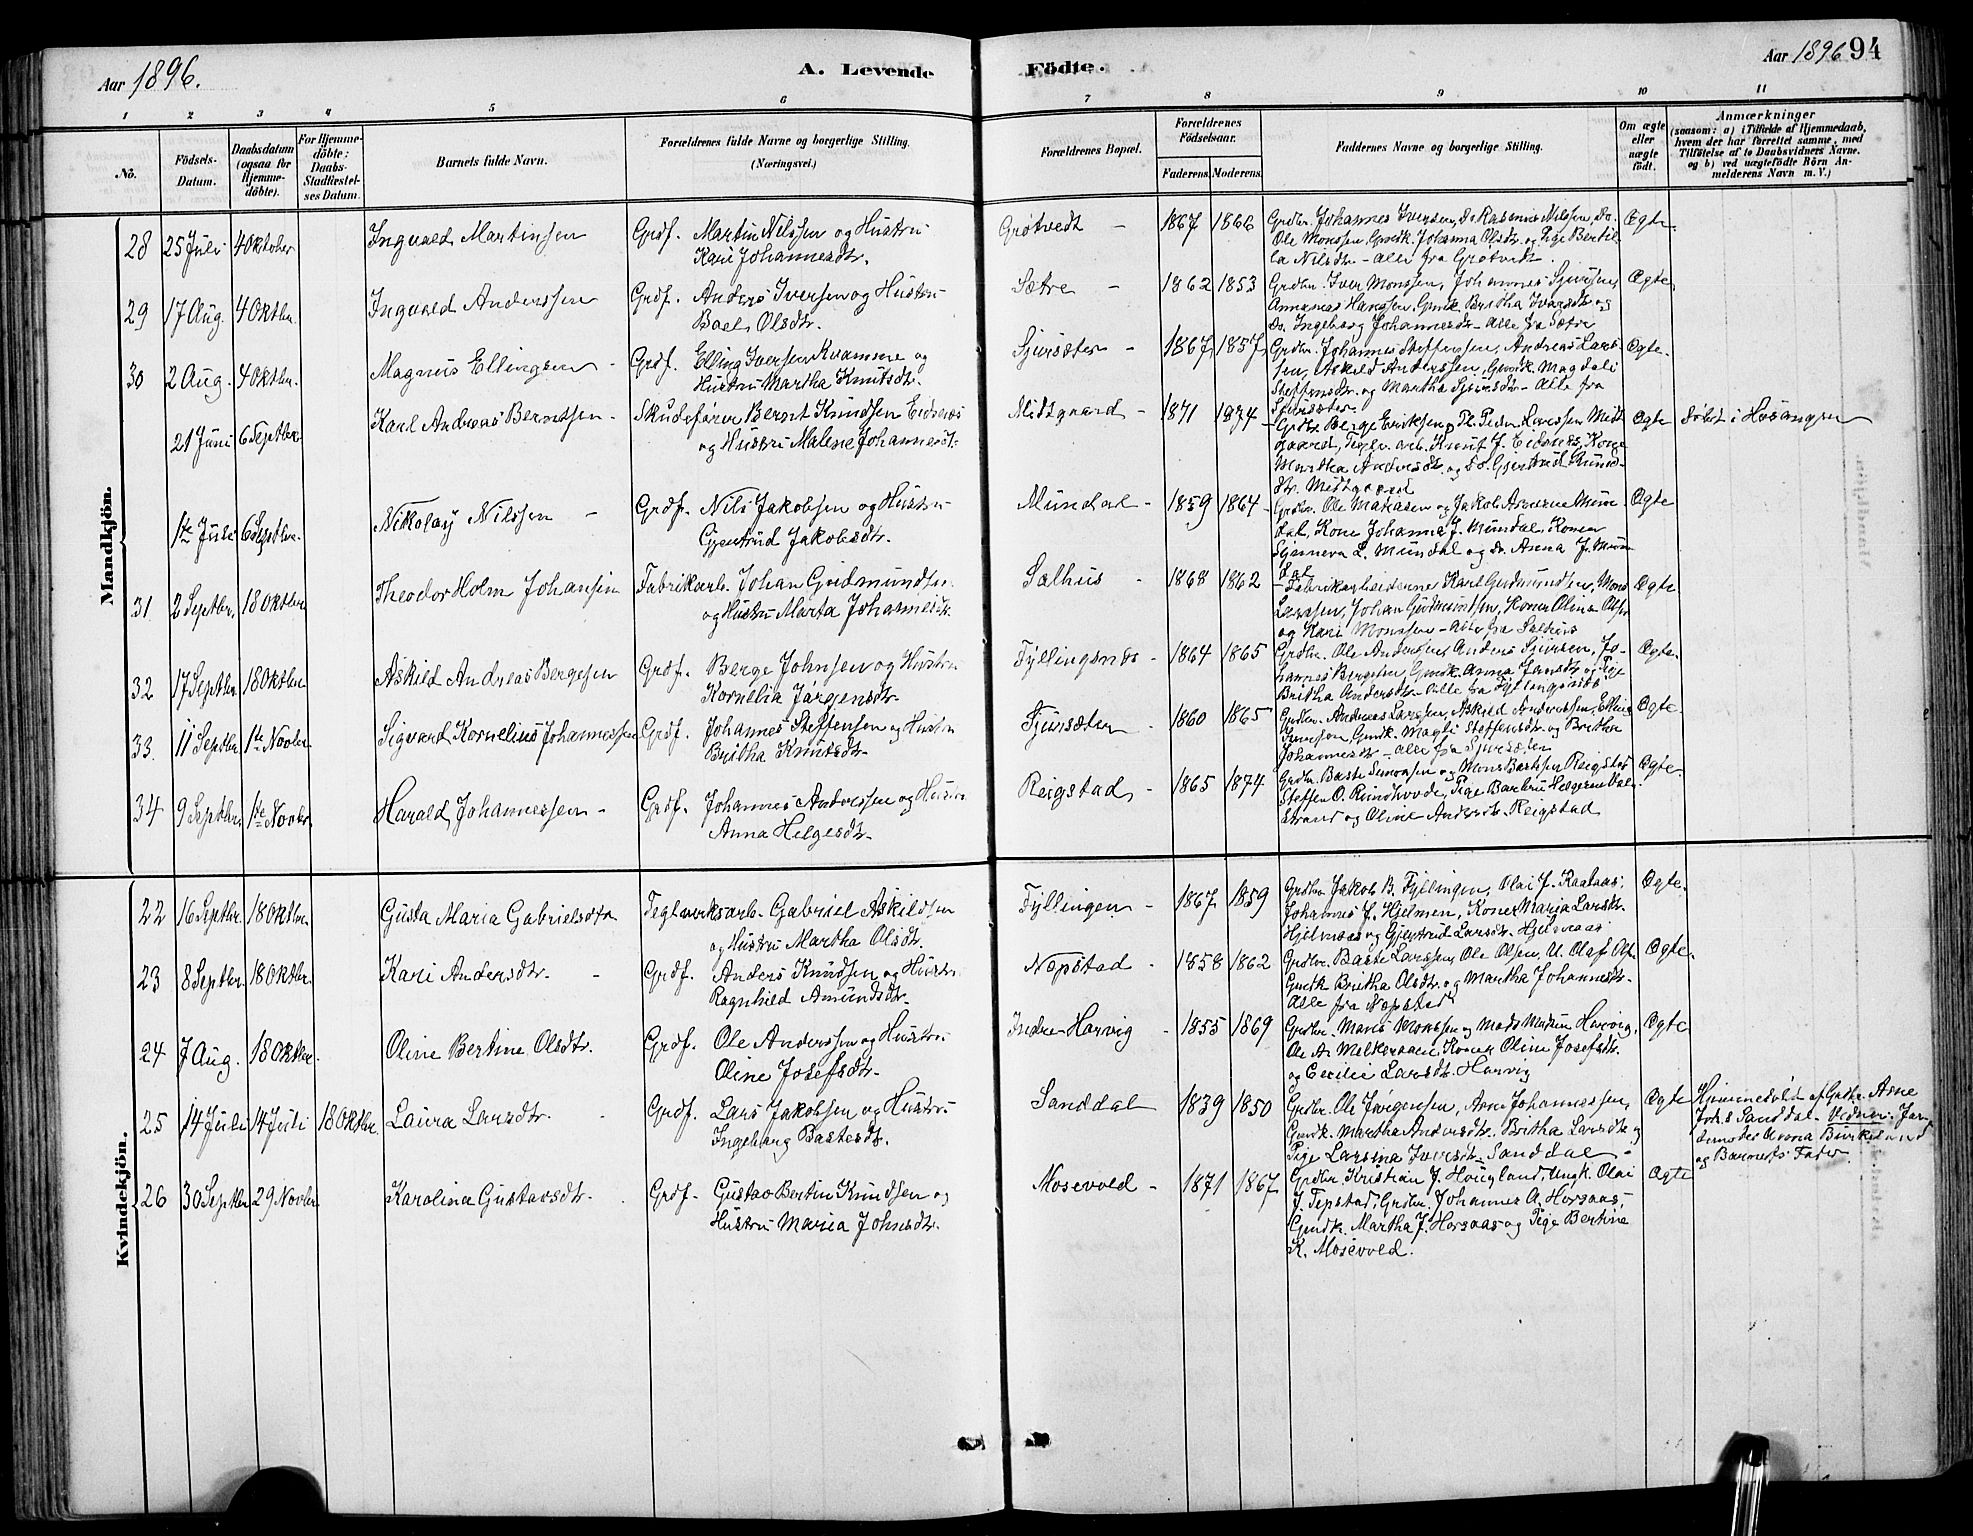 Aar 1896.
A. Levende
Födte.
Aar 1896 94
1 2 3 4 5 6 7 8 9 10 11
No.
Födsels-Datum.
Daabsdatum (ogsaa for Hjemme-döbte).
For Hjemme-döbte: Daabs-Stadfæstel-ses Datum.
Barnets fulde Navn.
Forældrenes fulde Navne og borgerlige Stilling.
(Næringsvei.)
Forældrenes Bopæl.
Forældrenes Födselsaar.
Faderens. Moderens.
Faddernes Navne og borgerlige Stilling.
Om ægte eller uægte födt.
Anmærkninger
(saasom: a) i Tilfælde af Hjemmedaab,
hvem der har forrettet samme, med
Tilföielse af to Daabsvidners Navne.
og b) ved uægtefödte Börn An-
melderens Navn m. V.)
Mandkjön.
28 25 Juli 4 Oktober Ingvald Martinsen Grdf. Martin Nilssen og Hustru
Kari Johannesdtr.
Grøtvedt - 1867 1866 Grdbr. Johannes Iversen, Do Rasmus Nilssen, Do.
Ole Monssen, Gmdk. Johanna Olsdtr. og Pige Bertil-
la Nilsdtr - alle fra Grøtvedt.
Ægte
29 17 Aug. 4 Oktbr. Ingvald Anderssen Grdf. Anders Iversen og Hustru
Boel Olsdtr.
Sætre - 1862 1853 Grdbr. Iver Monssen, Johannes Sjursen,
Annanias Hanssen, Gmdk. Britha Ivarsdtr og
Do. Ingeborg Johannesdtr - Alle fra Sætre
Ægte
30 2 Aug. 4 Oktbr. Magnus Ellingsen - Grdf. Elling Iversen Kvamme og
Hustru Martha Knutsdtr.
Sjursæter - 1867 1857 Grdbr. Johannes Steffensen, Andreas Lars-
sen, Askild Anderssen, Gmdk. Magdali
Steffensdtr. og Martha Sjursdtr - Alle fra
Sjursæter.
Ægte.
21 Juni 6 Septbr. Karl Andreas Berntsen - Skudefører Bernt Knudsen Eidsnæs
og Hustru Malene Johannesdt.
Midtgaard - 1871 1874 - Grdbr. Berge Eriksen, Peder Larssen Midt
gaard, Teglv. arb. Knut J. Eidsnes, Kone
Martha Andersdtr. og Do. Gjertrud Knuds-
dtr. Midtgaard
Ægte Døbt i Hosanger
1ste Juli 6 Septbr. Nikolay Nilssen - Grdf. Nils Jakobsen og Hustru
Gjertrud Jakobsdtr.
Mundal - 1859 1864 - Grdbr. Ole Matiasen og Jakob Asmunsen Mun
dal, Kone Johanna J. Mundal, Konen
Synneva L. Mundal og do. Anna J. Mun
dal
Ægte
31 2 Septbr. 18 Oktbr Theodor Holm Johansen Fabrikarb. Johan Gudmundsen
og Hustru Marta Johannesdtr.
Salhus - 1868 1862 - Fabrikarbeiderne Karl Gudmundsen, Mons
Larssen, Johan Gudmundsen, Konen Olina Olsen
og Kari Monssen - Alle fra Salhus
Ægte
32 17 Septbr. 18 Oktbr. Askild Andreas Bergesen Grdf. Berge Johnsen og Hustru
Kornelia Jørgensdtr.
Fyllingsnæs - 1864 1865 Grdbr. Ole Andersen, Anders Sjursen, Jo-
hannes Bergesen, Gmdk. Anna Jansdtr og Pige
Britha Andersdtr - Alle fra Fyllingsnæs
Ægte.
33. 11 Septbr. 1ste Novbr. Sigvard Kornelius Johannessen Grdf. Johannes Steffensen og Hustru
Britha Knutsdtr.
Sjursæter - 1860 1865 Grdbr. Andreas Larssen, Askild Anderssen, Elling
Iversen, Gmdk. Magli Steffensdtr. og Britha
Johannesdtr - alle fra Sjursæter
Ægte.
34 9 Septbr. 1ste Novbr. Harald Johannessen - Grdf. Johannes Andersen og Hustru
Anna Helgesdtr.
Reigstad - 1865 1874 Grdbr. Baste Simonsen og Mons Bastesen Reigstad
Steffen O. Rundhovde, Pige Barbru Helgesen Val-
strand og Oline Andersdt. Reigstad
Ægte.
Kvindekjön.
22 16 Septbr. 18 Oktbr. Gusta Maria Gabrielsdtr Teglverksarb. Gabriel Askildsen
og Hustru Martha Olsdtr.
Fyllingen - 1867 1859 Grdbr Jakob B. Fyllingen, Olai J. Raataas,
Johannes J. Hjelmen, Konen Maria Larsdt.
Hjelmaas og Gjertrud Larsdt. Hjelmaas
Ægte.
23 8 Septbr. 18 Oktbr. Kari Andersdtr. - Grdf. Anders Knudsen og Hustru
Ragnhild Amundsdtr.
Nepstad - 1858 1862 Grdbr. Baste Larssen, Ole Olsen, U. Olaf Ols.
Gmdk Britha Olsdtr. og Martha Johannesdtr.
Alle fra Nepstad
Ægte.
24 7 Aug. 18 Oktbr. Oline Bertine Olsdtr. Grdf. Ole Andersen og Hustru
Oline Josefsdtr.
Indre Horvig - 1855 1869 Grdbr. Mons Monssen og Mads Madsen Horvig,
Ole A. Melkeraaen, Konen Oline Josefsdtr.
og Cecilie Larsdtr. Horvig
Ægte
25 14 Juli 14 Juli 18 Oktbr. Laura Larsdtr. - Grdf. Lars Jakobsen og Hustru
Ingeborg Bastesdt.
Sanddal 1839 1850 Grdbr. Ole Jørgensen, Arne Johannessen,
Gmdk. Martha Andersdtr. Britha Larsdtr og
Pige Larsina Iversdt. Sanddal -
Ægte Hjemmedøbt af Grdbr. Arne
Joh.s Sanddal. Vidner: Jor
demoder Anna Birkeland
og Barnets Fader.
26 30 Septbr 29 Novbr. Karolina Gustavsdtr. - Grdf. Gustav Bertin Knudsen og
Hustru Maria Johnsdtr.
Mosevold - 1871 1867 Grdbr. Kristian J. Hougland, Ungk. Olai
J. Tepstad, Grdbr. Johannes A. Horsaas,
Gmdk. Martha J. Horsaas og Pige Bertine
K. Mosevold.
Ægte